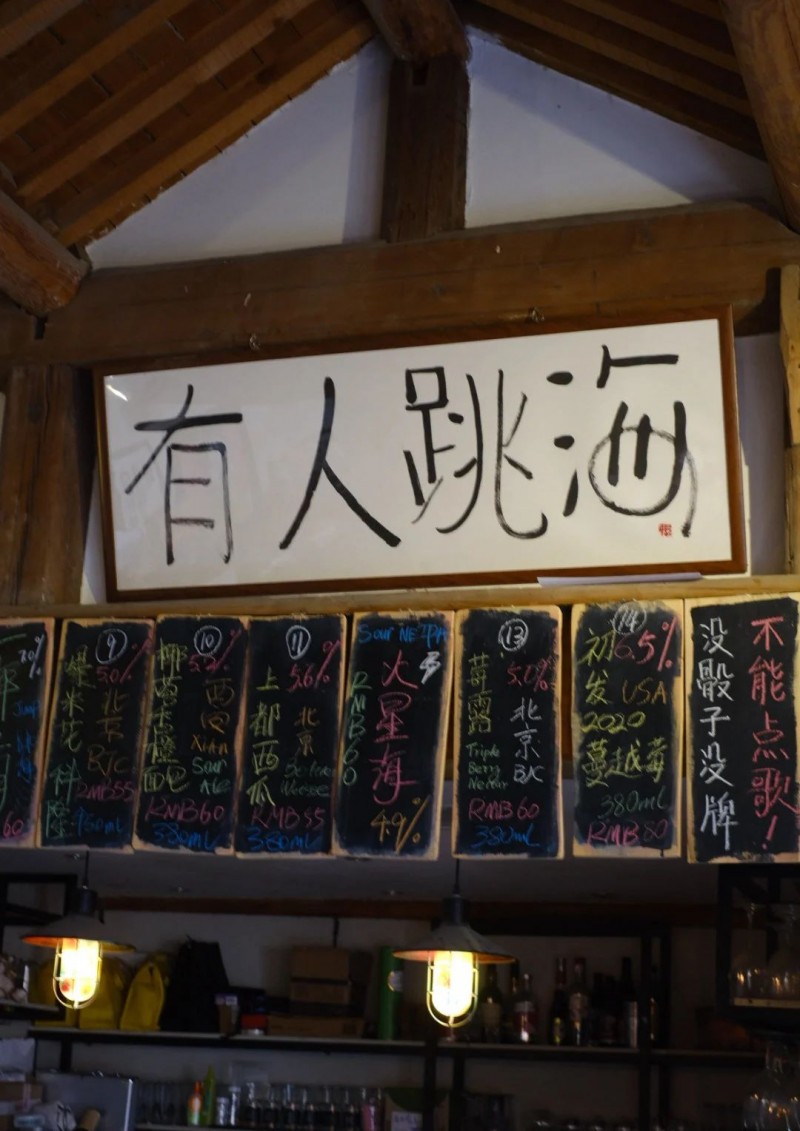 有人跳海
7.0%
60
⑨
5.0%
爆米花
北京
BJC
RMB55
⑩
5.2%
椰
西安
XiAn
Sour
Ale
RMB60
380mL
⑪
5.6%
上都西瓜
北京
RMB55
380mL
Sour NEIPA
火星海
RMB60
4.9%
⑬
5.0%
莓露
北京
BJC
Triple
Berry
Nectar
RMB60
380mL
⑭
6.5%
初发
USA
2020
蔓越莓
380mL
RMB80
不能点歌!
没骰子没牌